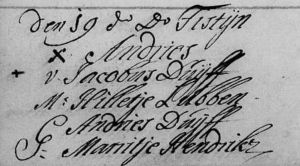 den 19 d° Do Tistijn
x Andries
+ v: Jacobus Duijff
M: Hilletje Lubben
G Andries Duijff
G: Marritje Hendriks